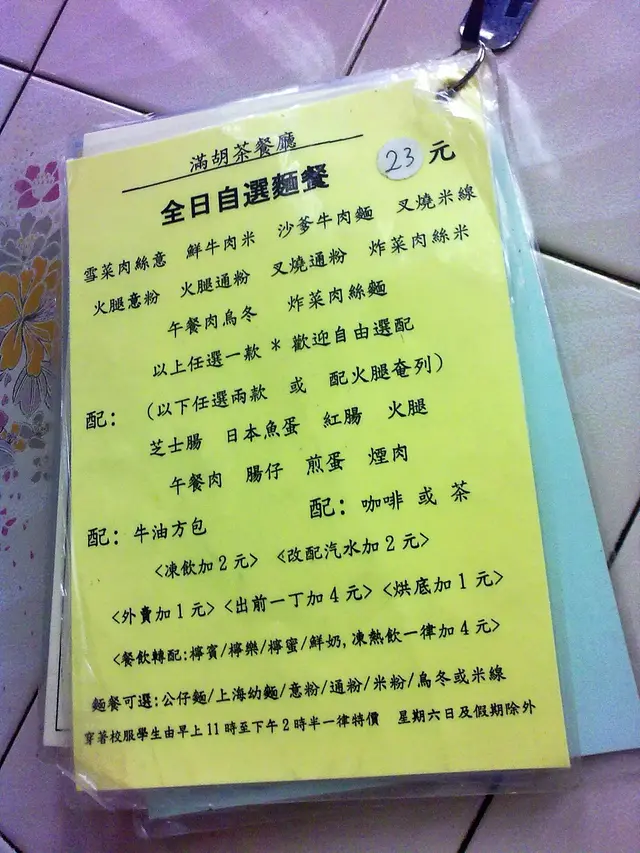 滿胡茶餐廳
全日自選麵餐 23 元
雪菜肉絲意 鮮牛肉米 沙爹牛肉麵 叉燒米線
火腿意粉 火腿通粉 叉燒通粉 炸菜肉絲米
午餐肉烏冬 炸菜肉絲麵
以上任選一款 * 歡迎自由選配
配: (以下任選兩款 或 配火腿奄列)
芝士腸 日本魚蛋 紅腸 火腿
午餐肉 腸仔 煎蛋 煙肉
配: 牛油方包 配: 咖啡 或 茶
<凍飲加 2 元> <改配汽水加 2 元>
<外賣加 1 元> <出前一丁加 4 元> <烘底加 1 元>
<餐飲轉配:檸賓/檸樂/檸蜜/鮮奶,凍熱飲一律加 4 元>
麵餐可選:公仔麵/上海幼麵/意粉/通粉/米粉/烏冬或米線
穿著校服學生由早上 11 時至下午 2 時半一律特價 星期六日及假期除外